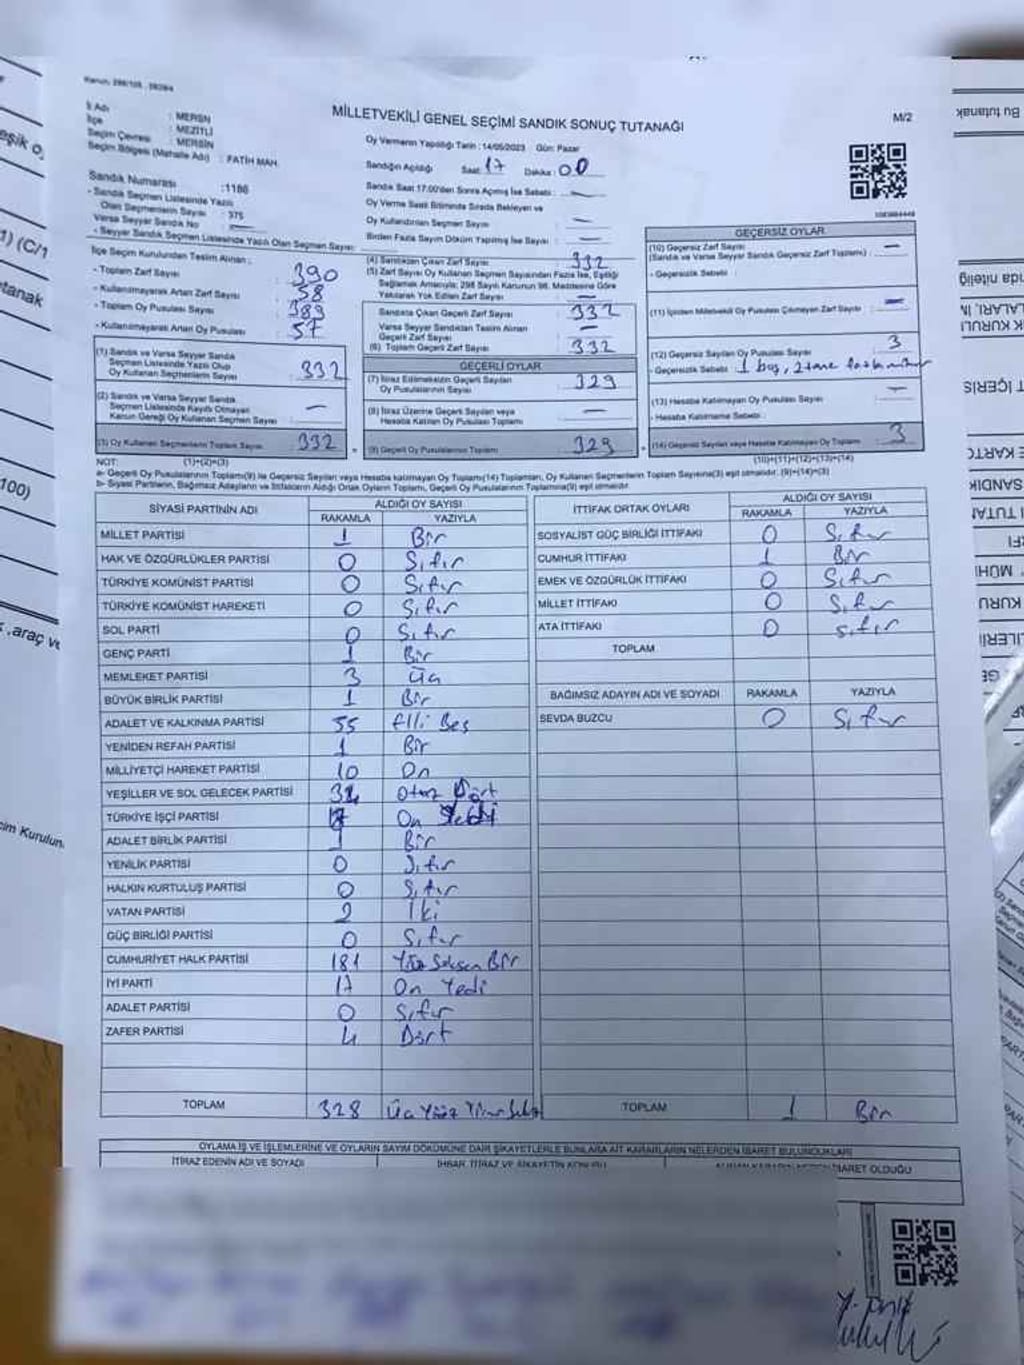 Kanun: 298/105
İl Adı : MERSİN
İlçe : MEZİTLİ
Seçim Çevresi : MERSİN
Seçim Bölgesi (Mahalle Adı) : FATİH MAH.
MİLLETVEKİLİ GENEL SEÇİMİ SANDIK SONUÇ TUTANAĞI
M/2
Oy Vermenin Yapıldığı Tarih : 14/05/2023 Gün: Pazar
Sandığın Açıldığı Saat: 17 Dakika: 00
Sandık Saat 17:00'den Sonra Açılmış İse Sebebi : —
Oy Verme Saati Bitiminde Sırada Bekleyen ve
Oy Kullandırılan Seçmen Sayısı : —
Birden Fazla Sayım Döküm Yapılmış İse Sayısı : —
Sandık Numarası :1186
- Sandık Seçmen Listesinde Yazılı
Olan Seçmenlerin Sayısı : 375
Varsa Seyyar Sandık No : —
- Seyyar Sandık Seçmen Listesinde Yazılı Olan Seçmen Sayısı:
İlçe Seçim Kurulundan Teslim Alınan :
- Toplam Zarf Sayısı : 390
- Kullanılmayarak Artan Zarf Sayısı : 58
- Toplam Oy Pusulası Sayısı : 389
- Kullanılmayarak Artan Oy Pusulası : 57
(1) Sandık ve Varsa Seyyar Sandık
Seçmen Listesinde Yazılı Olup
Oy Kullanan Seçmenlerin Sayısı : 332
(2) Sandık ve Varsa Seyyar Sandık
Seçmen Listesinde Kayıtlı Olmayan
Kanun Gereği Oy Kullanan Seçmen Sayısı : —
(3) Oy Kullanan Seçmenlerin Toplam Sayısı : 332
(4) Sandıktan Çıkan Zarf Sayısı : 332
(5) Zarf Sayısı Oy Kullanan Seçmen Sayısından Fazla İse, Eşitliği
Sağlamak Amacıyla; 298 Sayılı Kanunun 98. Maddesine Göre
Yakılarak Yok Edilen Zarf Sayısı : —
Sandıkta Çıkan Geçerli Zarf Sayısı : 332
Varsa Seyyar Sandıktan Teslim Alınan
Geçerli Zarf Sayısı : —
(6) Toplam Geçerli Zarf Sayısı : 332
GEÇERLİ OYLAR
(7) İtiraz Edilmeksizin Geçerli Sayılan
Oy Pusulasının Sayısı : 329
(8) İtiraz Üzerine Geçerli Sayılan veya
Hesaba Katılan Oy Pusulası Toplamı : —
(9) Geçerli Oy Pusulalarının Toplamı : 329
GEÇERSİZ OYLAR
(10) Geçersiz Zarf Sayısı
(Sandık ve Varsa Seyyar Sandık Geçersiz Zarf Toplamı) : —
- Geçersizlik Sebebi :
(11) İçinden Milletvekili Oy Pusulası Çıkmayan Zarf Sayısı : —
(12) Geçersiz Sayılan Oy Pusulası Sayısı : 3
- Geçersizlik Sebebi : 1 boş, 2 tane
(13) Hesaba Katılmayan Oy Pusulası Sayısı : —
- Hesaba Katılmama Sebebi :
(14) Geçersiz Sayılan veya Hesaba Katılmayan Oy Toplamı : 3
NOT: (1)+(2)=(3)
(10)+(11)+(12)+(13)=(14)
a- Geçerli Oy Pusulalarının Toplamı(9) ile Geçersiz Sayılan veya Hesaba katılmayan Oy Toplamı(14) Toplamları, Oy Kullanan Seçmenlerin Toplam Sayısına(3) eşit olmalıdır. (9)+(14)=(3)
b- Siyasi Partilerin, Bağımsız Adayların ve İttifakların Aldığı Ortak Oyların Toplamı, Geçerli Oy Pusulalarının Toplamına(9) eşit olmalıdır.
SİYASİ PARTİNİN ADI ALDIĞI OY SAYISI
RAKAMLA YAZIYLA
MİLLET PARTİSİ 1 Bir
HAK VE ÖZGÜRLÜKLER PARTİSİ 0 Sıfır
TÜRKİYE KOMÜNİST PARTİSİ 0 Sıfır
TÜRKİYE KOMÜNİST HAREKETİ 0 Sıfır
SOL PARTİ 0 Sıfır
GENÇ PARTİ 1 Bir
MEMLEKET PARTİSİ 3 Üç
BÜYÜK BİRLİK PARTİSİ 1 Bir
ADALET VE KALKINMA PARTİSİ 55 Elli Beş
YENİDEN REFAH PARTİSİ 1 Bir
MİLLİYETÇİ HAREKET PARTİSİ 10 On
YEŞİLLER VE SOL GELECEK PARTİSİ 34 Otuz Dört
TÜRKİYE İŞÇİ PARTİSİ On
ADALET BİRLİK PARTİSİ 1 Bir
YENİLİK PARTİSİ 0 Sıfır
HALKIN KURTULUŞ PARTİSİ 0 Sıfır
VATAN PARTİSİ 2 İki
GÜÇ BİRLİĞİ PARTİSİ 0 Sıfır
CUMHURİYET HALK PARTİSİ 181 Yüz Seksen Bir
İYİ PARTİ 17 On Yedi
ADALET PARTİSİ 0 Sıfır
ZAFER PARTİSİ 4 Dört
TOPLAM 328 Üç Yüz Yirmi Sekiz
İTTİFAK ORTAK OYLARI ALDIĞI OY SAYISI
RAKAMLA YAZIYLA
SOSYALİST GÜÇ BİRLİĞİ İTTİFAKI 0 Sıfır
CUMHUR İTTİFAKI 1 Bir
EMEK VE ÖZGÜRLÜK İTTİFAKI 0 Sıfır
MİLLET İTTİFAKI 0 Sıfır
ATA İTTİFAKI 0 Sıfır
TOPLAM
BAĞIMSIZ ADAYIN ADI VE SOYADI RAKAMLA YAZIYLA
SEVDA BUZCU 0 Sıfır
TOPLAM 1 Bir
OYLAMA İŞ VE İŞLEMLERİNE VE OYLARIN SAYIM DÖKÜMÜNE DAİR ŞİKAYETLERLE BUNLARA AİT KARARLARIN NELERDEN İBARET BULUNDUKLARI
İTİRAZ EDENİN ADI VE SOYADI
İHBAR, İTİRAZ VE ŞİKAYETİN KONUSU
İBARET OLDUĞU